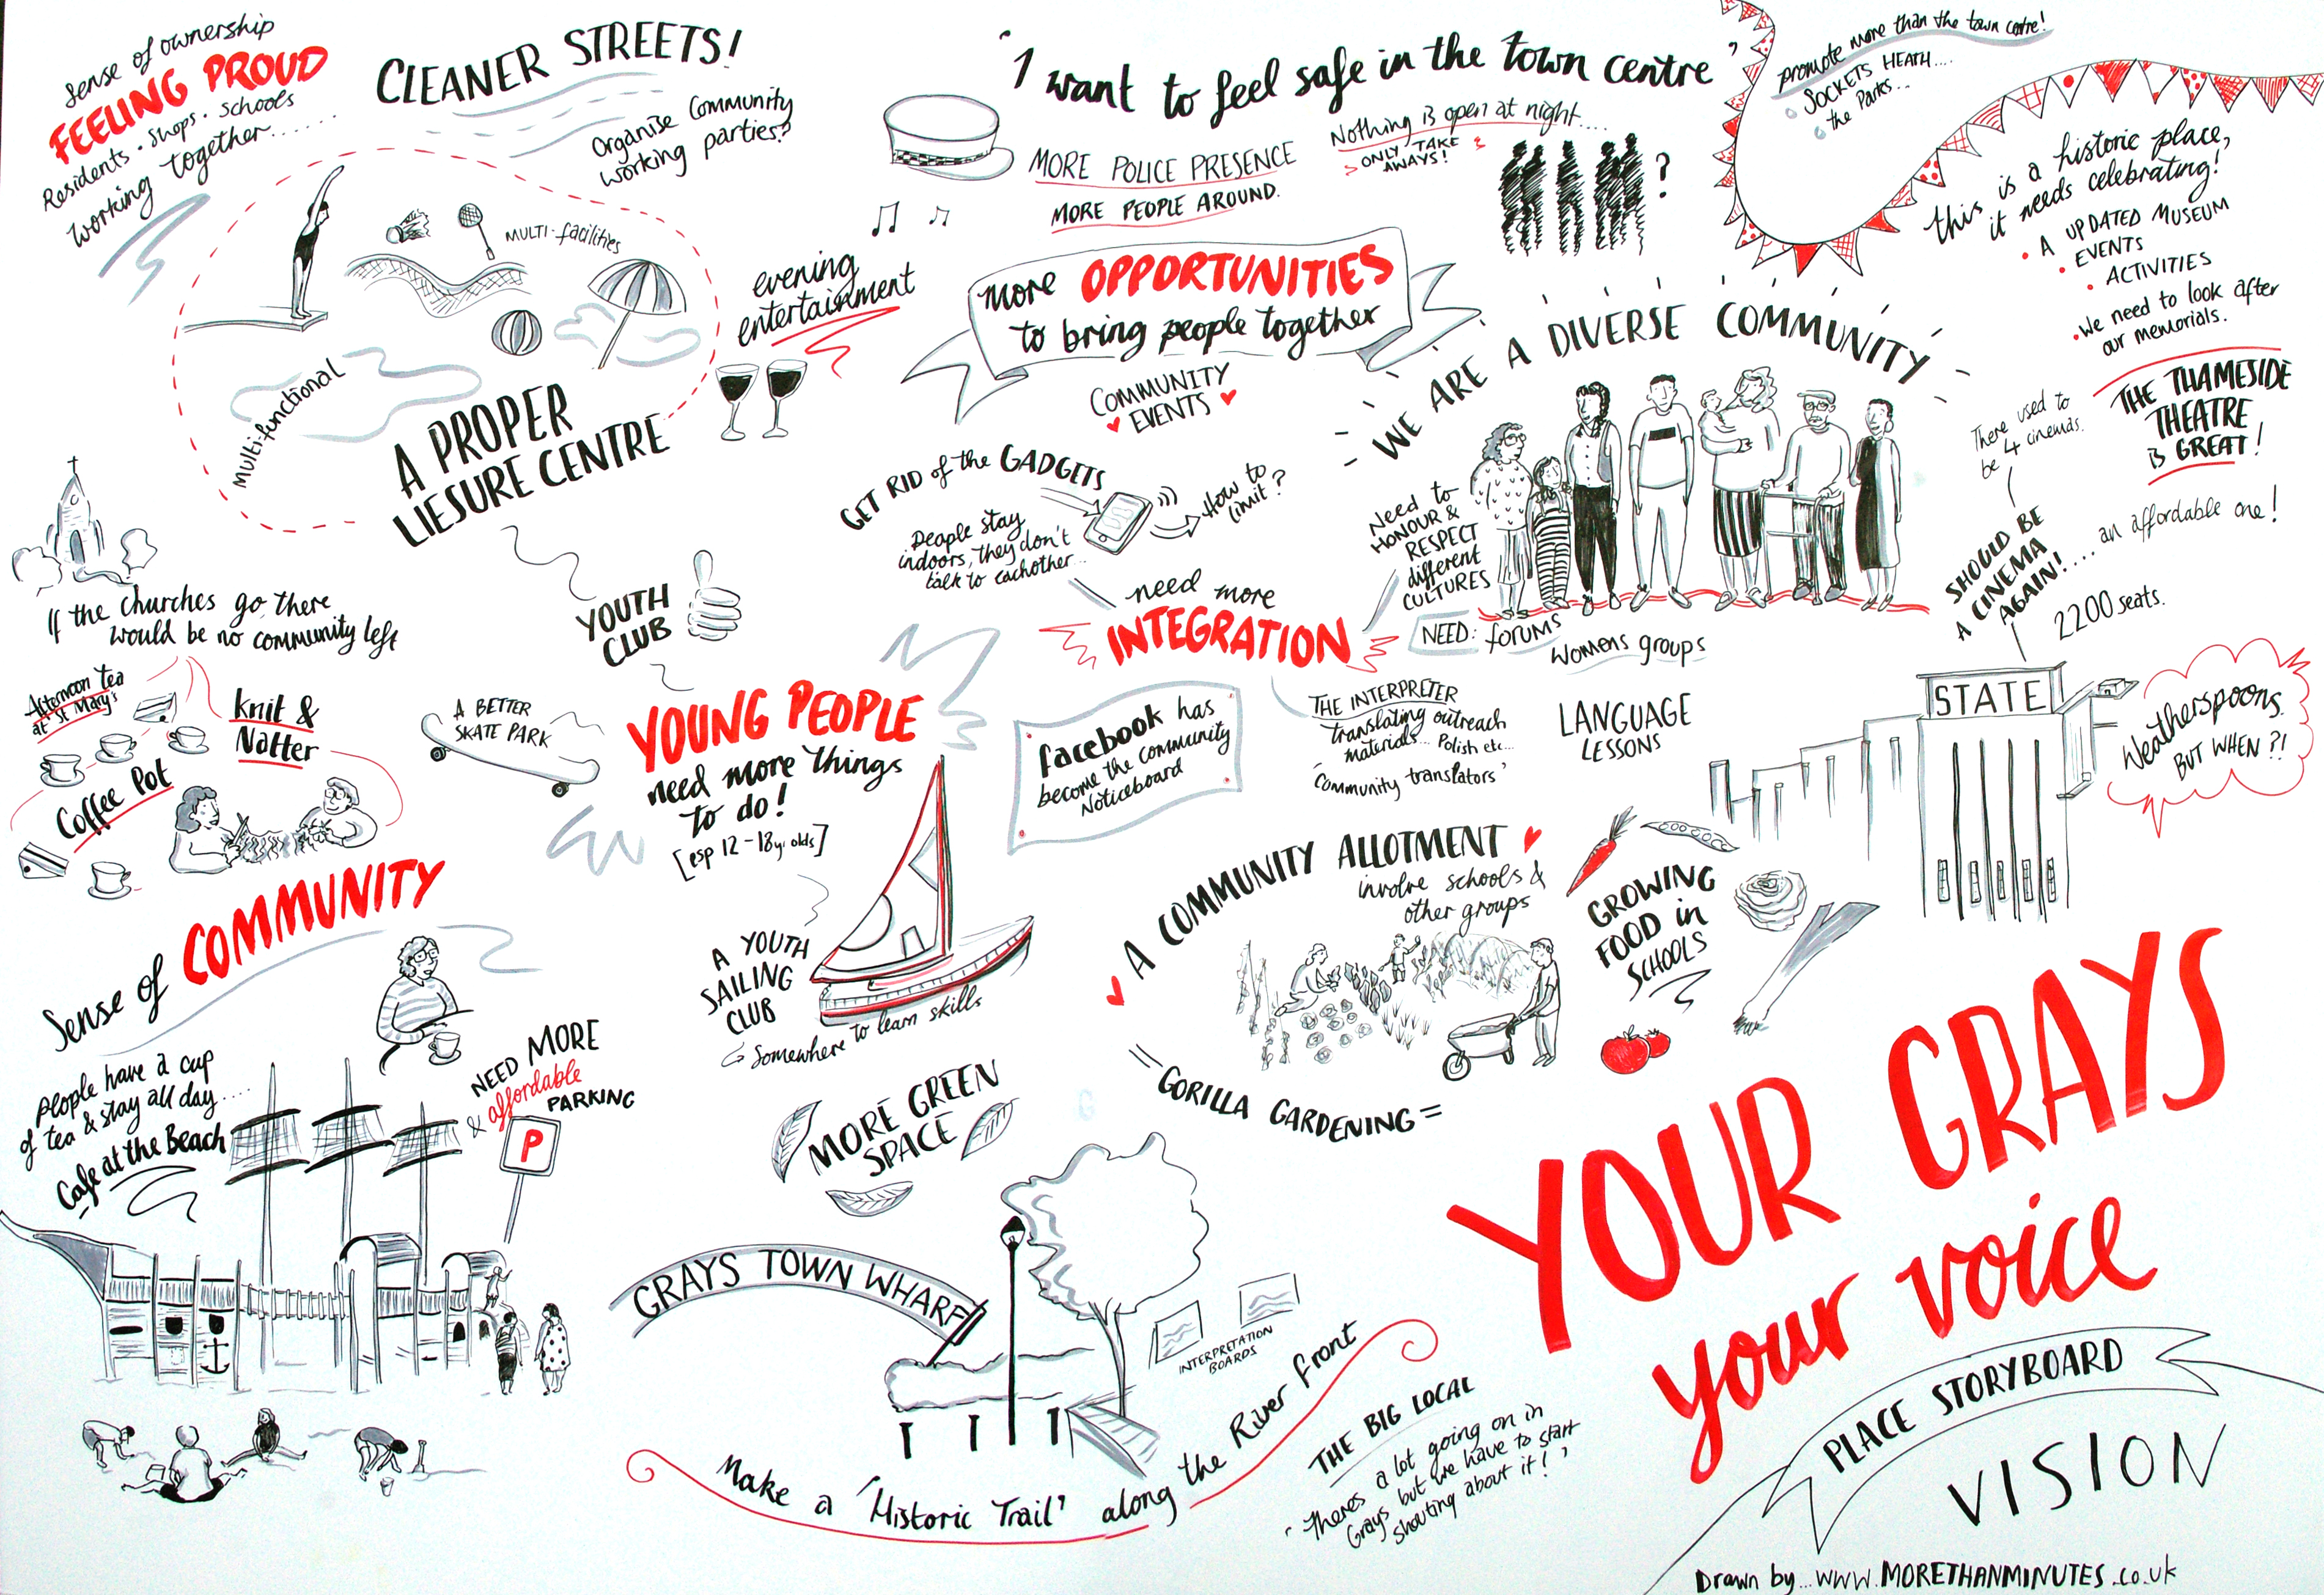 sense of ownership
FEELING PROUD
Residents . shops . schools
working together......
CLEANER STREETS!
Organise Community
working parties?
MULTI-facilities
Multi-functional
A PROPER
LIESURE CENTRE
evening
entertainment
'I want to feel safe in the town centre'
MORE POLICE PRESENCE
MORE PEOPLE AROUND.
Nothing is open at night....
ONLY TAKE
AWAYS!
?
promote more than the town centre!
SOCKETS HEATH....
the Parks...
this is a historic place,
it needs celebrating!
A UPDATED MUSEUM
EVENTS
ACTIVITIES
We need to look after
our memorials.
THE THAMESIDE
THEATRE
is GREAT!
more OPPORTUNITIES
to bring people together
COMMUNITY
EVENTS
GET RID of the GADGETS
How to
limit?
People stay
indoors, they don't
talk to eachother...
WE ARE A DIVERSE COMMUNITY
Need to
HONOUR &
RESPECT
different
CULTURES
need more
INTEGRATION
NEED: forums
womens groups
There used to
be 4 cinemas.
SHOULD BE
A CINEMA
AGAIN!.... an affordable one!
2200 seats.
STATE
Weatherspoons.
BUT WHEN?!
If the churches go there
would be no community left
Afternoon tea
at St Mary's
Knit &
Natter
Coffee Pot
Sense of COMMUNITY
YOUTH
CLUB
A BETTER
SKATE PARK
YOUNG PEOPLE
need more things
to do!
[esp 12-18yr olds]
A YOUTH
SAILING
CLUB
Somewhere to learn skills
facebook has
become the community
Noticeboard
THE INTERPRETER
translating outreach
materials... Polish etc...
'Community translators'
LANGUAGE
LESSONS
A COMMUNITY ALLOTMENT
involve schools &
other groups
GROWING
FOOD in
SCHOOLS
= GORILLA GARDENING =
people have a cup
of tea & stay all day....
Cafe at the Beach
NEED MORE
& affordable
PARKING
P
MORE GREEN
SPACE
GRAYS TOWN WHARF
INTERPRETATION
BOARDS
Make a 'Historic Trail' along the River front
THE BIG LOCAL
'Theres a lot going on in
Grays but we have to start
shouting about it!'
YOUR GRAYS
your voice
PLACE STORYBOARD
VISION
Drawn by...www.MORETHANMINUTES.co.uk